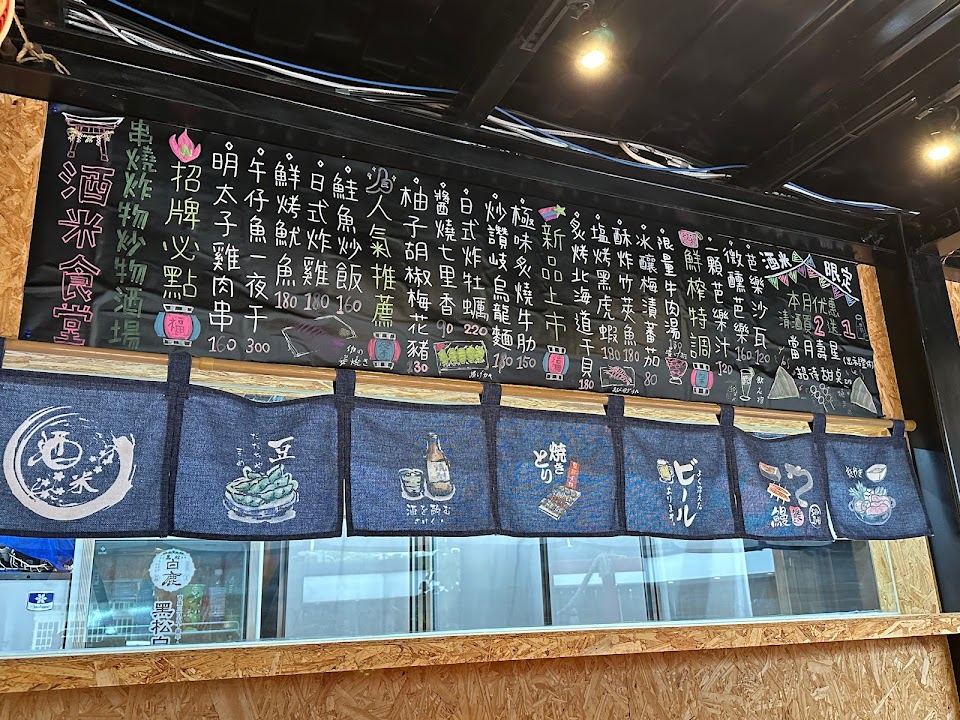 酒米食堂
串燒炸物炒物酒場
招牌必點
福
明太子雞肉串 160
午仔魚一夜干 300
鮮烤魷魚 180
日式炸雞 180
鮭魚炒飯 160
人氣推薦
柚子胡椒梅花豬 130
醬燒七里香 90
日式炸牡蠣 220
炒讚岐烏龍麵 180
極味炙燒牛肋 150
新品上市
福
炙烤北海道干貝 180
塩烤黑虎蝦 180
酥炸竹莢魚 180
冰釀梅漬蕃茄 80
限量牛肉湯 180
鮮榨特調
一顆芭樂汁 120
微醺芭樂 160
芭樂沙瓦 120
酒米 限定
本月優惠
當月壽星
招待甜點
酒米
豆
酒を飲む
焼きとり
ビール
鰻
白鹿
黑松白